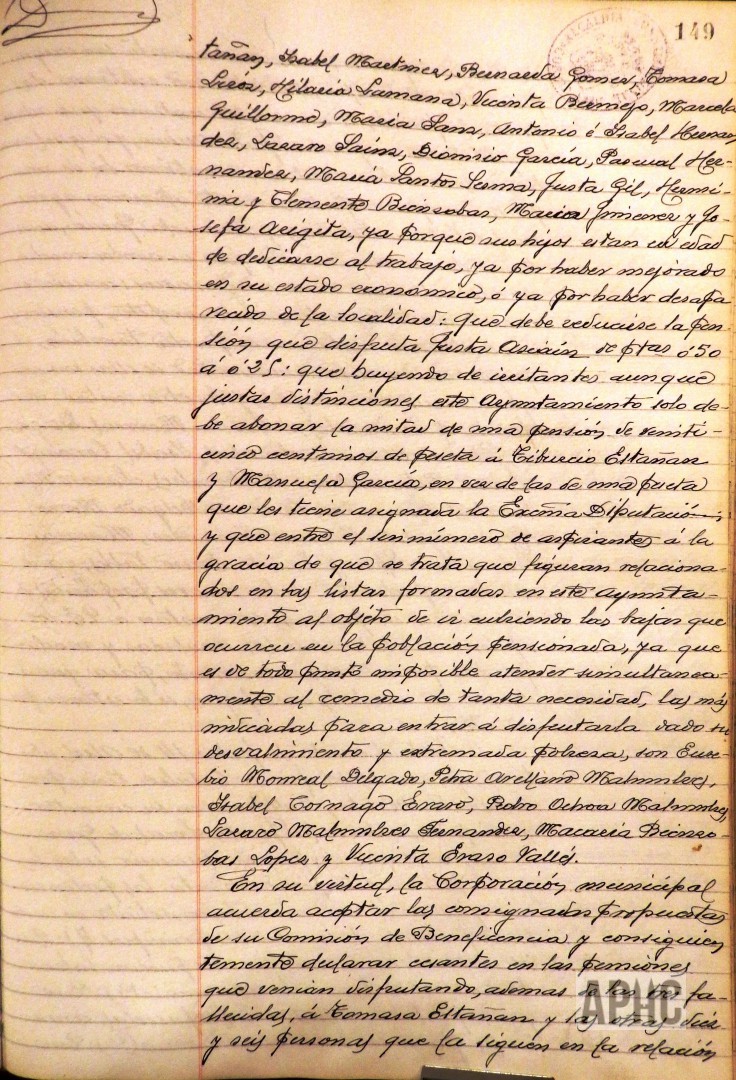 149
tañan, Isabel Martinez, Bernarda Gomez, Tomasa
Liroz, Hilaria Lamana, Vicenta Bermejo, Marcela
Guillermo, Maria Sanz, Antonio é Isabel Hernan
dez, Lazaro Sainz, Dionisio García, Pascual Her-
nandez, María Santos Lerma, Justa Gil, Hermi-
nia y Clemente Bienzobas, Maria Jimenez y Jo-
sefa Arigita, ya porque sus hijos estan en edad
de dedicarse al trabajo, ya por haber mejorado
en su estado económico, ó ya por haber desapa
recido de la localidad: que debe reducirse la pen-
sión que disfruta Justa Asiain de ptas 0'50
á 0'25: que huyendo de irritantes aunque
justas distinciones este Ayuntamiento solo de-
be abonar la mitad de una pensión de veinti-
cinco centimos de peseta á Tiburcio Estañan
y Manuela García, en vez de las de una peseta
que les tiene asignada la Excma Diputación;
y que entre el sinnúmero de aspirantes á la
gracia de que se trata que figuran relaciona-
dos en las listas formadas en este Ayunta-
miento al objeto de ir cubriendo las bajas que
ocurren en la población pensionada, ya que
es de todo punto imposible atender simultanea-
mente al remedio de tanta necesidad, las más
indicadas para entrar á disfrutarla dado su
desvalimiento y extremada pobreza, son Euse-
bio Monreal Delgado, Petra Arellano Malumbres,
Isabel Tornago Eraso, Pedro Ochoa Malumbres,
Lazaro Malumbres Fernandez, Macaria Bienzo-
bas Lopez y Vicenta Eraso Vallés.
En su virtud, la Corporación municipal
acuerda aceptar las consignadas propuestas
de su Comisión de Beneficencia y consiguien
temente declarar cesantes en las pensiones
que venian disfrutando, ademas de las fa-
llecidas, á Tomasa Estañan y las otras diez
y seis personas que la siguen en la relación
APHC